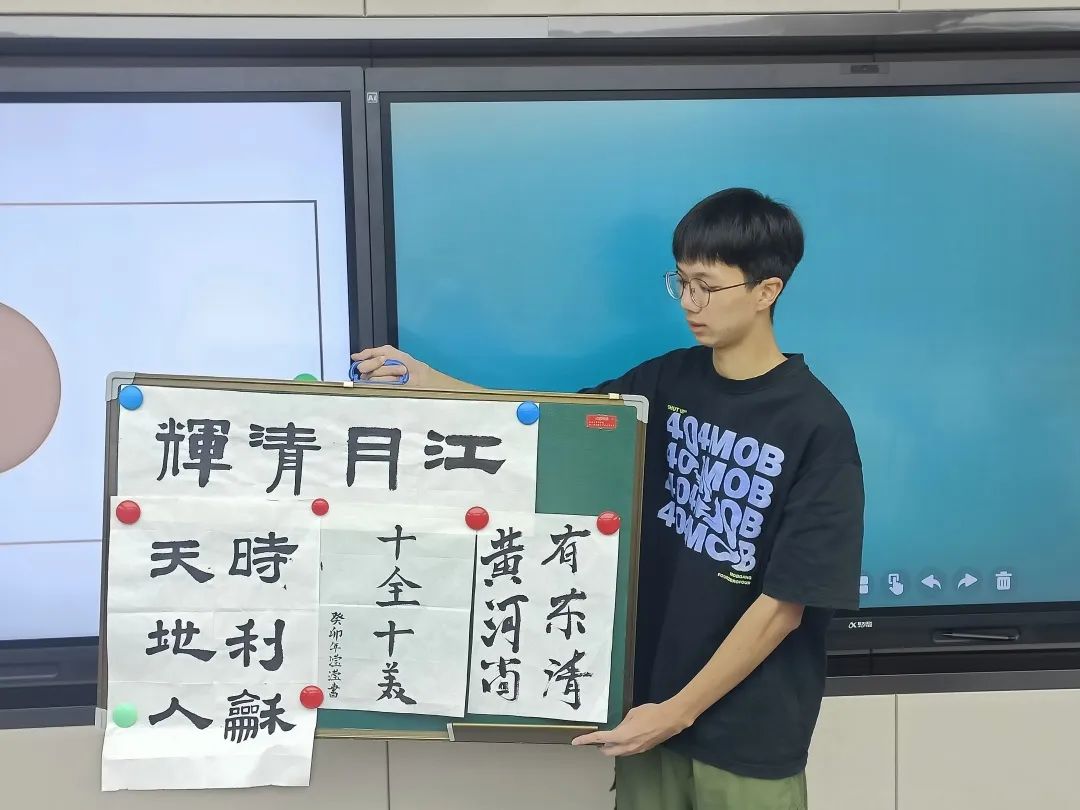 江月清輝
天時
地利
人龢
十全十美
癸卯年滢滢書
黄河尚
有清
404MOB
AI